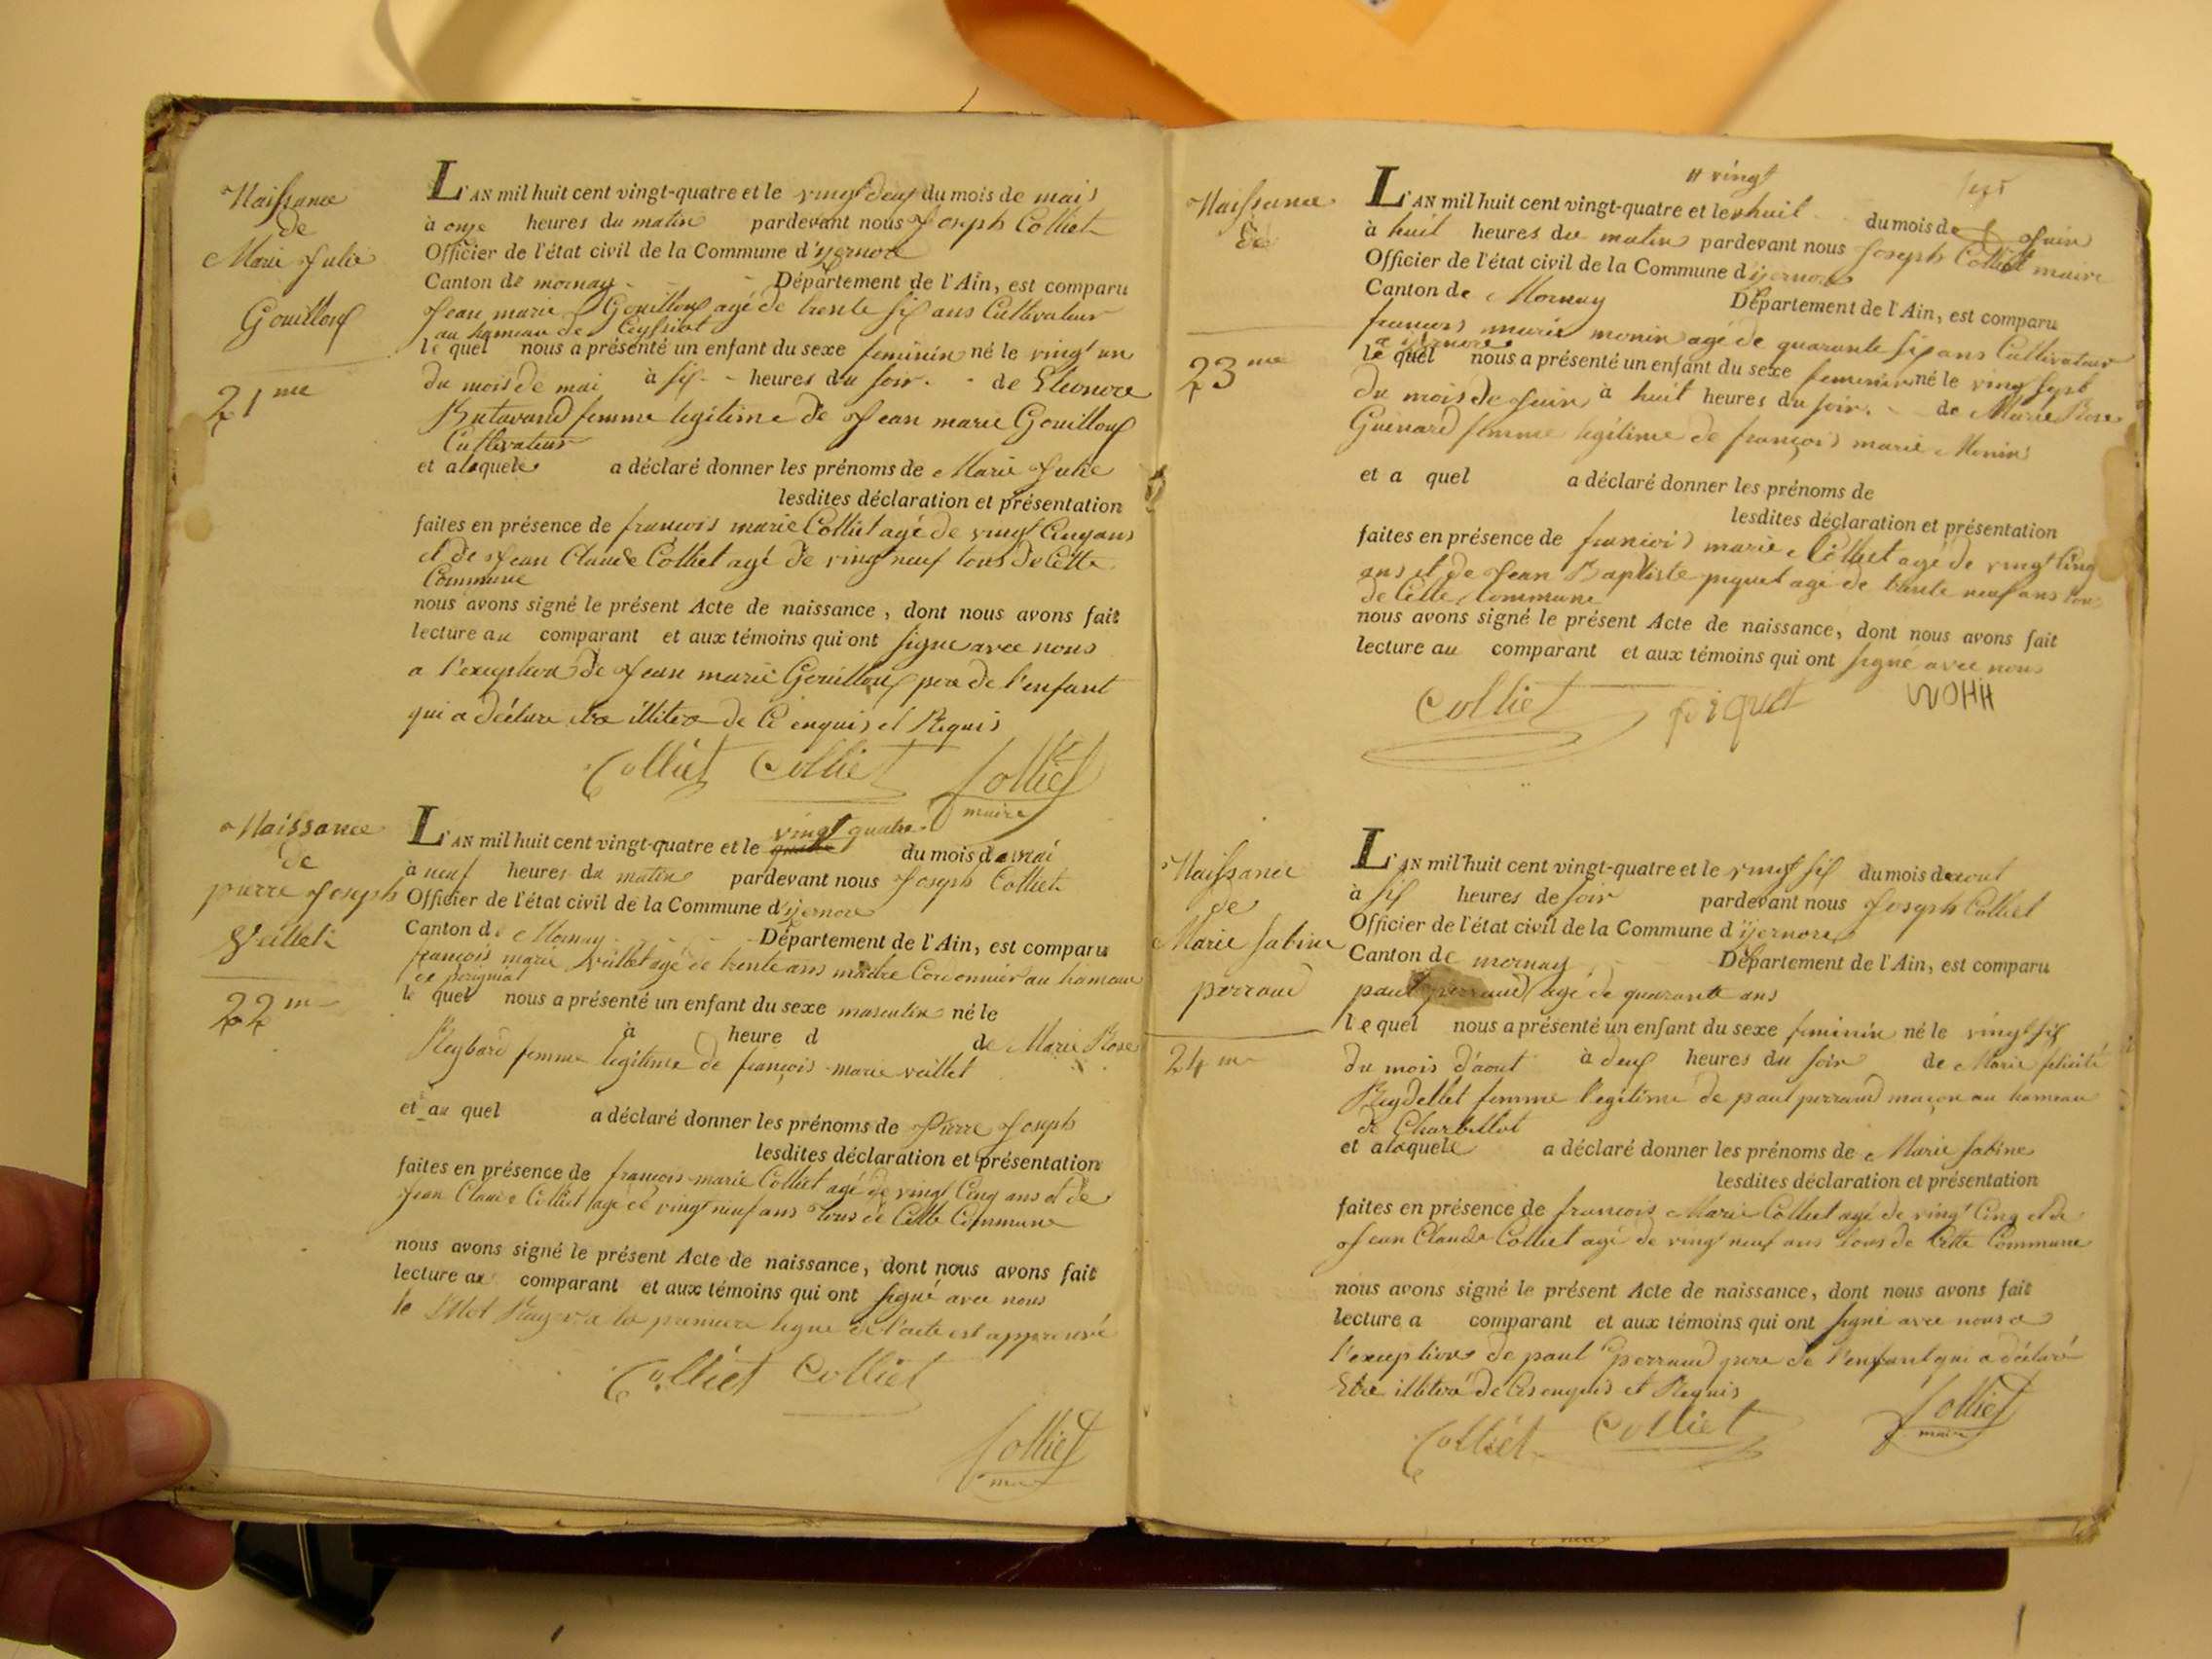 Naissance
de
Marie Julie
Gouilloux
21me
L'AN mil huit cent vingt-quatre et le vingt deux du mois de mais
à onze heures du matin pardevant nous Joseph Colliet
Officier de l'état civil de la Commune d'izernore
Canton de mornay Département de l'Ain, est comparu
Jean marie Gouilloux agé de trente six ans Cultivateur
au hameau de Ceyssiat
le quel nous a présenté un enfant du sexe feminin né le vingt un
du mois de mai à six heures du soir de Eléonore
Butavand femme legitime de Jean marie Gouilloux
Cultivateur
et a laquele a déclaré donner les prénoms de Marie Julie
lesdites déclaration et présentation
faites en présence de francois marie Colliet agé de vingt Cinq ans
et de Jean Claude Colliet agé de vingt neuf tous de Cette
Commune
nous avons signé le présent Acte de naissance, dont nous avons fait
lecture au comparant et aux témoins qui ont signe avec nous
a l'exception de Jean marie Gouilloux pere de l'enfant
qui a déclare illitéré de Ce enquis et Requis
Colliet Colliet Colliet
maire
Naissance
de
pierre Joseph
Veillet
22m
vingt quatre
L'AN mil huit cent vingt-quatre et le quatre du mois de mai
à neuf heures du matin pardevant nous Joseph Colliet
Officier de l'état civil de la Commune d'izernore
Canton de Mornay Département de l'Ain, est comparu
françois marie veillet agé de trente ans maitre Cordonnier au hameau
de perigniat
le quel nous a présenté un enfant du sexe masculin né le
à heure d de Marie Rose
Reybard femme legitime de françois marie veillet
et au quel a déclaré donner les prénoms de Pierre Joseph
lesdites déclaration et présentation
faites en présence de françois marie Colliet agé de vingt Cinq ans et de
Jean Claude Colliet agé de vingt neuf ans tous de Cette Commune
nous avons signé le présent Acte de naissance, dont nous avons fait
lecture au comparant et aux témoins qui ont signé avec nous
le Mot la premiere ligne de l'acte est approuvé
Colliet Colliet
Colliet
Naissance
de
23me
vingt
L'AN mil huit cent vingt-quatre et le huit du mois de Juin
à huit heures du matin pardevant nous Joseph Colliet maire
Officier de l'état civil de la Commune d'izernore
Canton de Mornay Département de l'Ain, est comparu
francois marie monin agé de quarante six ans Cultivateur
a izernore
le quel nous a présenté un enfant du sexe feminin né le vingt sept
du mois de Juin à huit heures du soir de Marie Rose
Guinard femme legitime de françois marie Monin
et a quel a déclaré donner les prénoms de
lesdites déclaration et présentation
faites en présence de francois marie Colliet agé de vingt Cinq
ans et de Jean Baptiste piquet agé de trente neuf ans tous
de Cette Commune
nous avons signé le présent Acte de naissance, dont nous avons fait
lecture au comparant et aux témoins qui ont signé avec nous
Colliet piquet
Naissance
de
Marie Sabine
perraud
24m
L'AN mil huit cent vingt-quatre et le vingt six du mois daout
à six heures de soir pardevant nous Joseph Colliet
Officier de l'état civil de la Commune d'izernore
Canton de mornay Département de l'Ain, est comparu
paul perraud agé de quarante ans
le quel nous a présenté un enfant du sexe feminin né le vingt six
du mois d'aout à deux heures du soir de Marie félicité
Reydellet femme legitime de paul perraud maçon au hameau
de Charbillat
et a laquele a déclaré donner les prénoms de Marie Sabine
lesdites déclaration et présentation
faites en présence de francois Marie Colliet agé de vingt Cinq et de
Jean Claude Colliet agé de vingt neuf ans tous de Cette Commune
nous avons signé le présent Acte de naissance, dont nous avons fait
lecture a comparant et aux témoins qui ont signé avec nous a
l'exception de paul perraud pere de l'enfant qui a déclaré
Etre illitéré de Ces enquis et Requis
Colliet Colliet Colliet
maire